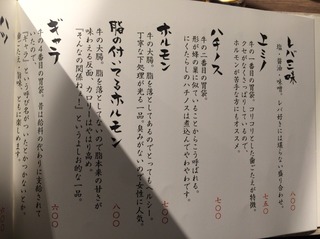 レバミ味
塩・醤油・味噌。レバ好きには堪らない盛り合わせ。
八〇〇
上ミノ
牛の一番目の胃袋。コリコリとした歯ごたえが特徴。
クセがなくさっぱりしているので、
ホルモンが苦手な方にもオススメ。
七五〇
ハチノス
牛の二番目の胃袋。
形が蜂の巣に似ていることからこう呼ばれる。
にくたらしいのハチノスは煮込んでやわやわです。
七〇〇
ホルモン
牛の大腸。脂を落としてあるのでとってもヘルシー。
丁寧な下処理が光る一品。臭みがないので女性に人気。
七〇〇
脂の付いてるホルモン
牛の大腸。脂を落としてないので脂本来の甘さが
味わえる反面、カロリーはやはり高め。
「そんなの関係ねぇ！」というよしお的な一品。
八〇〇
ギャラ
牛の4番目の胃袋。昔は給料の代わりに支給されて
六〇〇